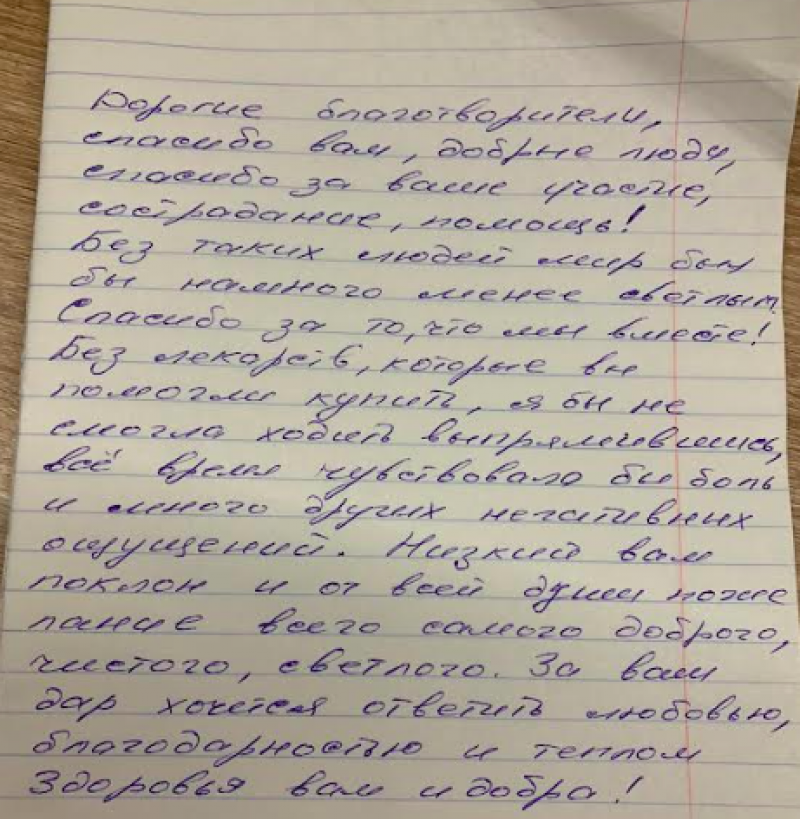 Дорогие благотворители,
спасибо вам, добрые люди,
спасибо за ваше участие,
сострадание, помощь!
Без таких людей мир был
бы намного менее светлым.
Спасибо за то, что мы вместе!
Без лекарств, которые вы
помогли купить, я бы не
смогла ходить выпрямившись,
всё время чувствовала бы боль
и много других негативных
ощущений. Низкий вам
поклон и от всей души поже
лание всего самого доброго,
чистого, светлого. За ваш
дар хочется ответить любовью,
благодарностью и теплом
Здоровья вам и добра!